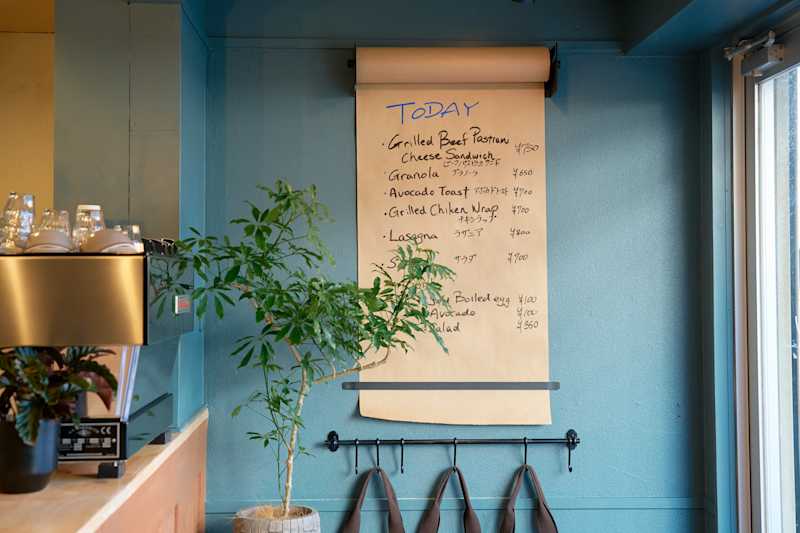 TODAY
· Grilled Beef Pastram
Cheese Sandwich ¥750
· Granola グラノーラ ¥650
· Avocado Toast アボカドトースト ¥700
· Grilled Chiken Wrap ¥700
チキンラップ
· Lasagna ラザニア ¥800
サラダ ¥900
Boiled egg ¥100
Avocado ¥100
Salad ¥350